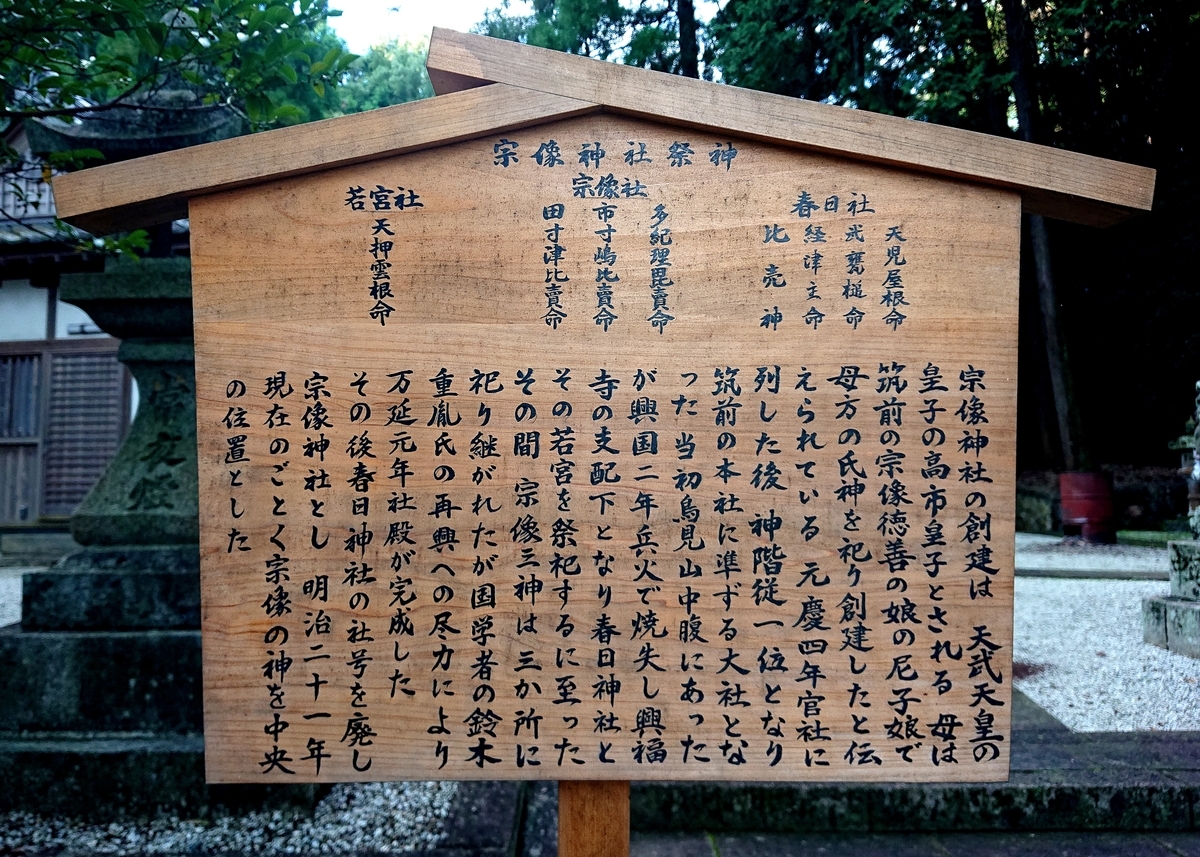 宗像神社祭神
春日社
天児屋根命
武甕槌命
経津主命
比売神
宗像社
多紀理毘賣命
市寸嶋比賣命
田寸津比賣命
若宮社
天押雲根命
宗像神社の創建は 天武天皇の
皇子の高市皇子とされる 母は
筑前の宗像徳善の娘の尼子娘で
母方の氏神を祀り創建したと伝
えられている 元慶四年官社に
列した後 神階従一位となり
筑前の本社に準ずる大社とな
った 当初鳥見山中腹にあった
が興国二年兵火で焼失し興福
寺の支配下となり春日神社と
その若宮を祭祀するに至った
その間 宗像三神は三か所に
祀り継がれたが国学者の鈴木
重胤氏の再興への尽力により
万延元年社殿が完成した
その後春日神社の社号を廃し
宗像神社とし 明治二十一年
現在のごとく宗像の神を中央
の位置とした